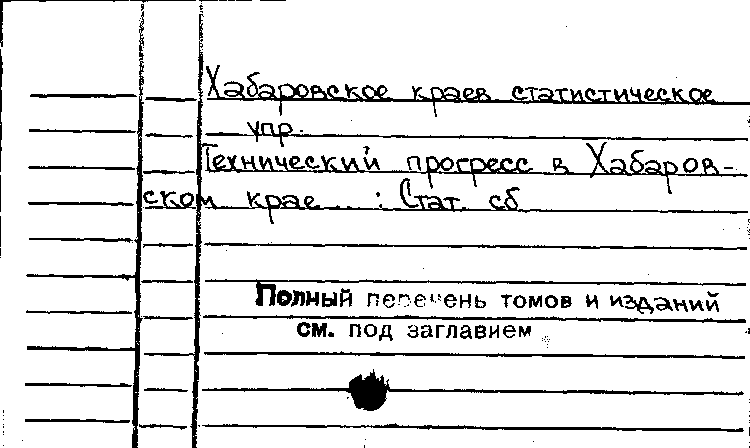 Хабаровское краев статистическое
упр.
Технический прогресс в Хабаров-
ском крае... : Стат. сб
Полный перечень томов и изданий
см. под заглавием